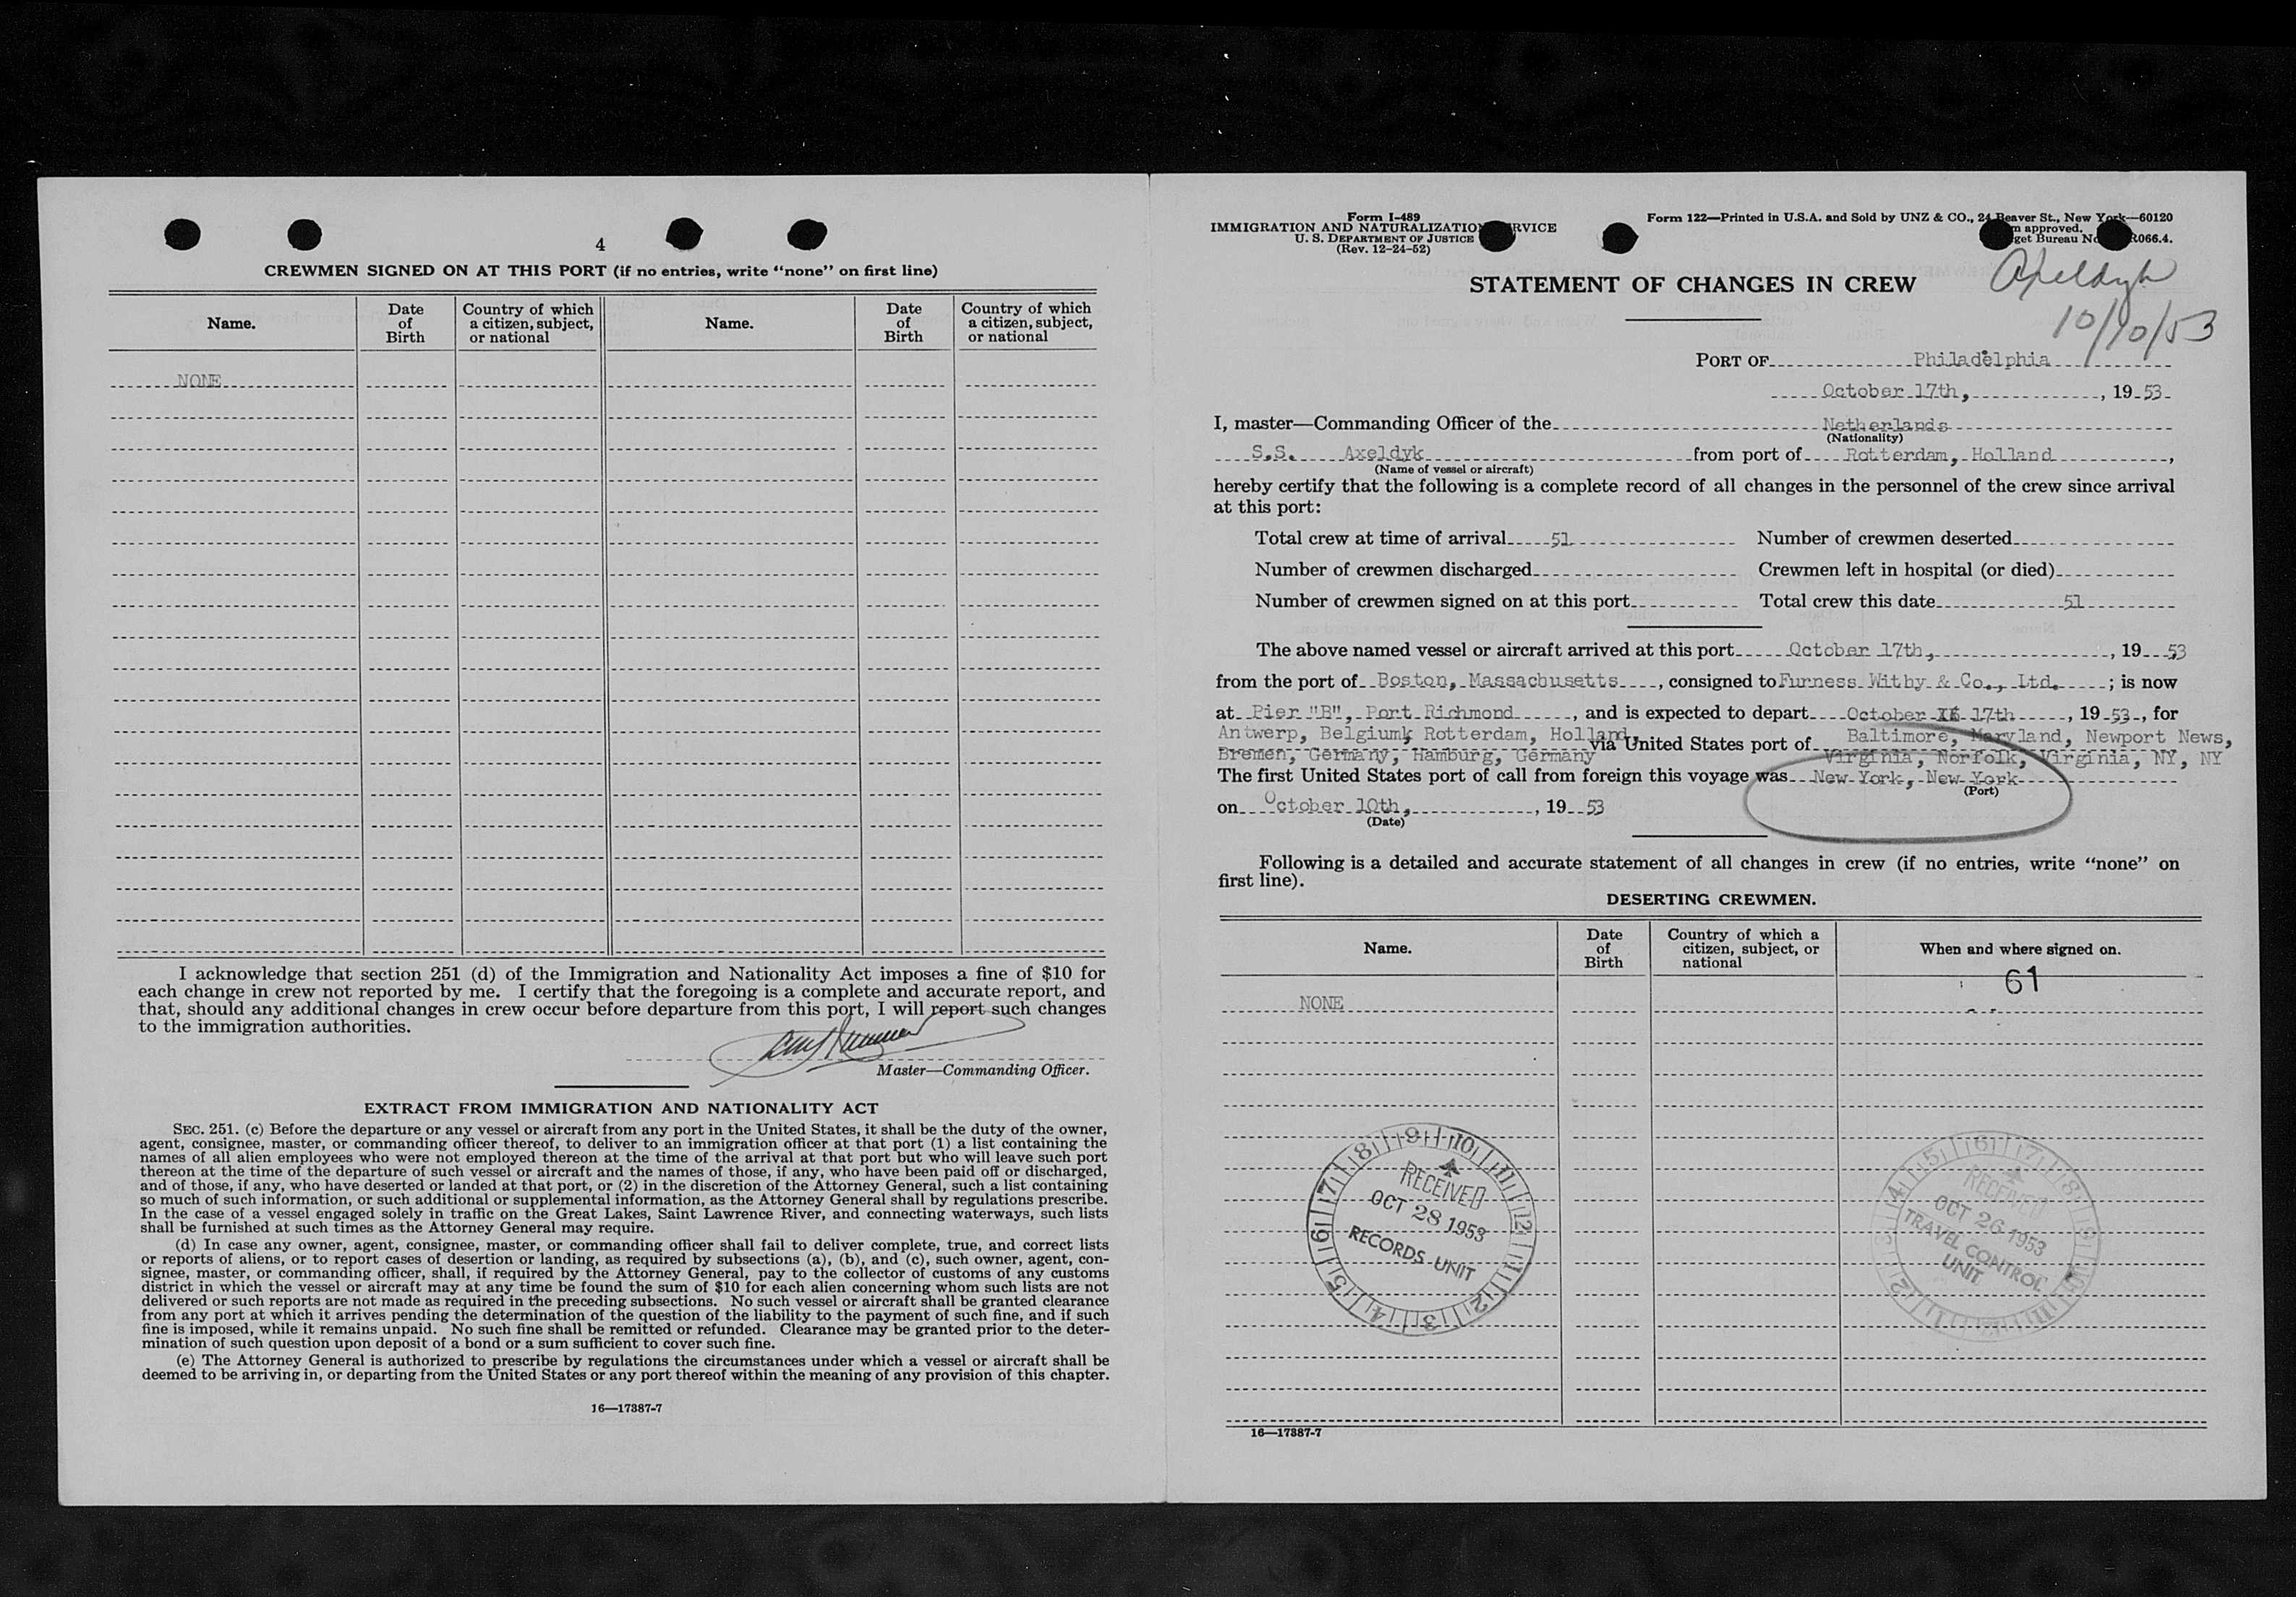 4
CREWMEN SIGNED ON AT THIS PORT (if no entries, write “none” on first line)
Name. Date of Birth Country of which a citizen, subject, or national Name. Date of Birth Country of which a citizen, subject, or national
NONE
I acknowledge that section 251 (d) of the Immigration and Nationality Act imposes a fine of $10 for
each change in crew not reported by me. I certify that the foregoing is a complete and accurate report, and
that, should any additional changes in crew occur before departure from this port, I will report such changes
to the immigration authorities.
Master—Commanding Officer.
EXTRACT FROM IMMIGRATION AND NATIONALITY ACT
SEC. 251. (c) Before the departure or any vessel or aircraft from any port in the United States, it shall be the duty of the owner,
agent, consignee, master, or commanding officer thereof, to deliver to an immigration officer at that port (1) a list containing the
names of all alien employees who were not employed thereon at the time of the arrival at that port but who will leave such port
thereon at the time of the departure of such vessel or aircraft and the names of those, if any, who have been paid off or discharged,
and of those, if any, who have deserted or landed at that port, or (2) in the discretion of the Attorney General, such a list containing
so much of such information, or such additional or supplemental information, as the Attorney General shall by regulations prescribe.
In the case of a vessel engaged solely in traffic on the Great Lakes, Saint Lawrence River, and connecting waterways, such lists
shall be furnished at such times as the Attorney General may require.
(d) In case any owner, agent, consignee, master, or commanding officer shall fail to deliver complete, true, and correct lists
or reports of aliens, or to report cases of desertion or landing, as required by subsections (a), (b), and (c), such owner, agent, con-
signee, master, or commanding officer, shall, if required by the Attorney General, pay to the collector of customs of any customs
district in which the vessel or aircraft may at any time be found the sum of $10 for each alien concerning whom such lists are not
delivered or such reports are not made as required in the preceding subsections. No such vessel or aircraft shall be granted clearance
from any port at which it arrives pending the determination of the question of the liability to the payment of such fine, and if such
fine is imposed, while it remains unpaid. No such fine shall be remitted or refunded. Clearance may be granted prior to the deter-
mination of such question upon deposit of a bond or a sum sufficient to cover such fine.
(e) The Attorney General is authorized to prescribe by regulations the circumstances under which a vessel or aircraft shall be
deemed to be arriving in, or departing from the United States or any port thereof within the meaning of any provision of this chapter.
16—17387-7
Form I-489
IMMIGRATION AND NATURALIZATION SERVICE
U. S. DEPARTMENT OF JUSTICE
(Rev. 12-24-52)
Form 122—Printed in U.S.A. and Sold by UNZ & CO., 24 Beaver St., New York—60120
approved.
get Bureau No. R066.4.
STATEMENT OF CHANGES IN CREW
Axeldyk
10/10/53
PORT OF Philadelphia
October 17th, , 19 53
I, master—Commanding Officer of the Netherlands
(Nationality)
S.S. Axeldyk from port of Rotterdam, Holland ,
(Name of vessel or aircraft)
hereby certify that the following is a complete record of all changes in the personnel of the crew since arrival
at this port:
Total crew at time of arrival 51 Number of crewmen deserted
Number of crewmen discharged Crewmen left in hospital (or died)
Number of crewmen signed on at this port Total crew this date 51
The above named vessel or aircraft arrived at this port October 17th, , 19 53
from the port of Boston, Massachusetts , consigned to Furness Witby & Co., Ltd. ; is now
at Pier "B", Port Richmond , and is expected to depart October 17th , 19 53 , for
Antwerp, Belgium, Rotterdam, Holland Baltimore, Maryland, Newport News,
Bremen, Germany, Hamburg, Germany via United States port of Virginia, Norfolk, Virginia, NY, NY
The first United States port of call from foreign this voyage was New York, New York
(Port)
on October 10th, , 19 53
(Date)
Following is a detailed and accurate statement of all changes in crew (if no entries, write “none” on
first line).
DESERTING CREWMEN.
Name. Date of Birth Country of which a citizen, subject, or national When and where signed on.
61
NONE
RECEIVED
OCT 28 1953
RECORDS UNIT
RECEIVED
OCT 26 1953
TRAVEL CONTROL
UNIT
16—17387-7